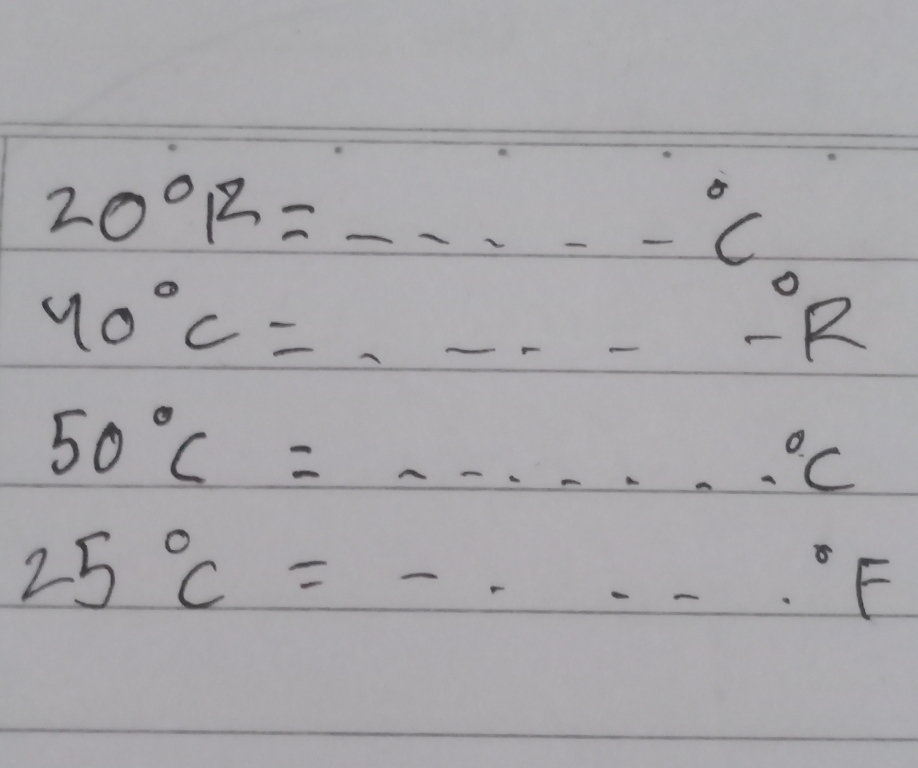 20°R = - - - - - °C
40°C = - - - - - °R
50°C = - - - - - - - °C
25°C = - - - - - °F